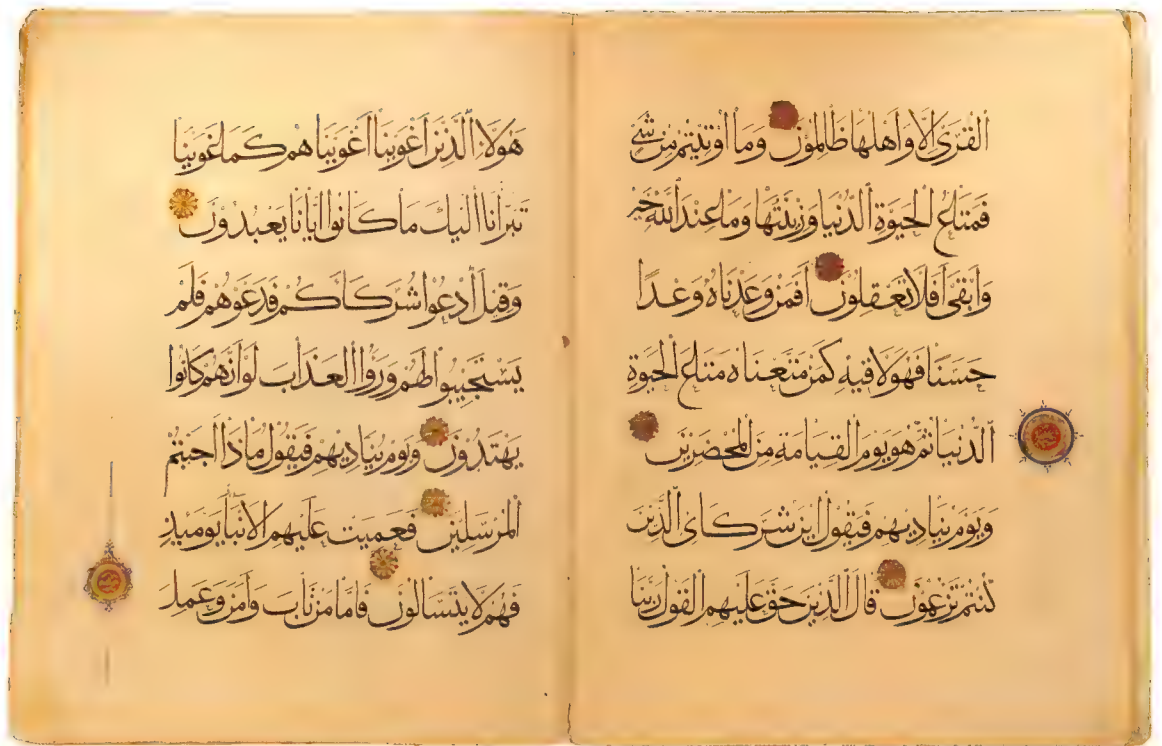 القرى الا واهلها ظالمون وما اوتيتم من شي
فمتاع الحيوة الدنيا وزينتها وما عند الله خير
وابقى افلا تعقلون افمن وعدناه وعدا
حسنا فهو لاقيه كمن متعناه متاع الحيوة
الدنيا ثم هو يوم القيامة من المحضرين
ويوم يناديهم فيقول اين شركاى الذين
كنتم تزعمون قال الذين حق عليهم القول ربنا
هولاء الذين اغوينا اغويناهم كما غوينا
تبرانا اليك ما كانوا ايانا يعبدون
وقيل ادعوا شركاكم فدعوهم فلم
يستجيبوا لهم وراوا العذاب لو انهم كانوا
يهتدون ويوم يناديهم فيقول ماذا اجبتم
المرسلين فعميت عليهم الانبا يوميذ
فهم لا يتسالون فاما من تاب وامن وعمل